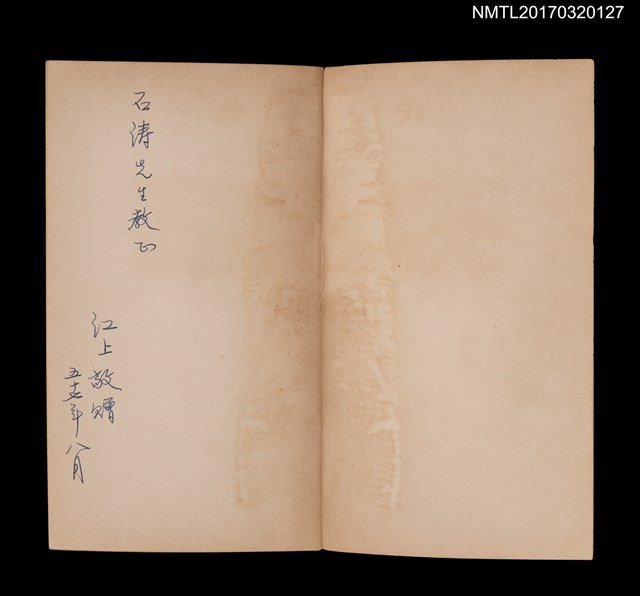 NMTL20170320127
石涛先生教正
江上敬贈
五十七年八月